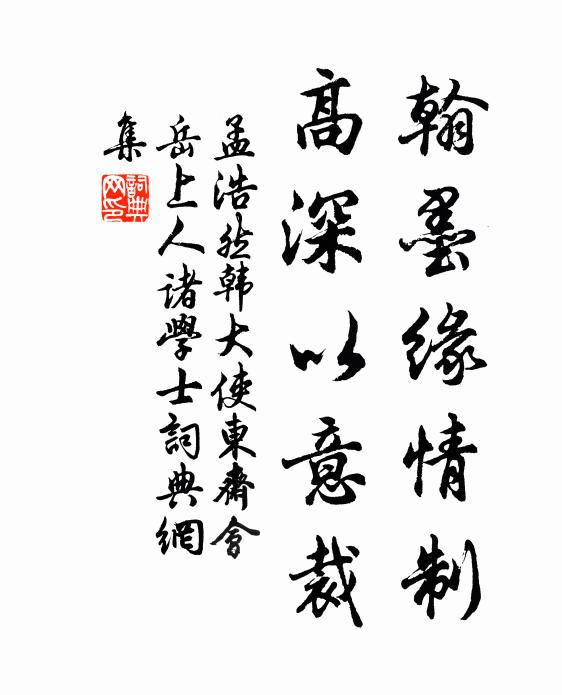 翰墨緣情制
高深以意裁
孟浩然韩大使東齋會
岳上人诸學士詞典網
集
詞典网印